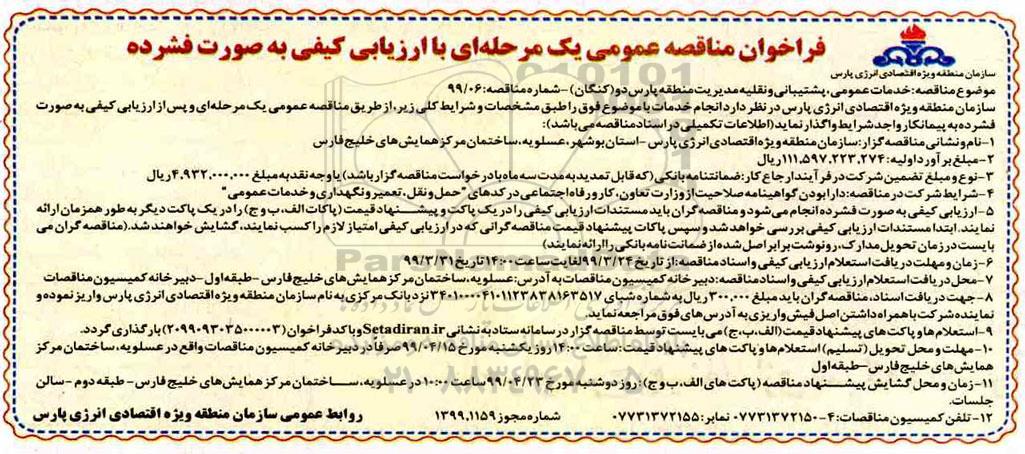 فراخوان مناقصه عمومی یک مرحله‌ای با ارزیابی کیفی به صورت فشرده
سازمان منطقه ویژه اقتصادی انرژی پارس
موضوع مناقصه: خدمات عمومی، پشتیبانی و نقلیه مدیریت منطقه پارس دو (کنگان) - شماره مناقصه: ۹۹/۰۶
سازمان منطقه ویژه اقتصادی انرژی پارس در نظر دارد انجام خدمات با موضوع فوق را طبق مشخصات و شرایط کلی زیر، از طریق مناقصه عمومی یک مرحله‌ای و پس از ارزیابی کیفی به صورت
فشرده به پیمانکار واجد شرایط واگذار نماید (اطلاعات تکمیلی در اسناد مناقصه می باشد):
۱- نام و نشانی مناقصه گزار: سازمان منطقه ویژه اقتصادی انرژی پارس - استان بوشهر، عسلویه، ساختمان مرکز همایش های خلیج فارس
۲- مبلغ برآورد اولیه: ۱۱۱.۵۹۷.۲۲۳.۲۷۴ ریال
۳- نوع و مبلغ تضمین شرکت در فرآیند ارجاع کار: ضمانتنامه بانکی (که قابل تمدید به مدت سه ماه با درخواست مناقصه گزار باشد) یا وجه نقد به مبلغ ۴.۹۳۲.۰۰۰.۰۰۰ ریال
۴- شرایط شرکت در مناقصه: دارا بودن گواهینامه صلاحیت از وزارت تعاون، کار و رفاه اجتماعی در کدهای "حمل و نقل، تعمیر و نگهداری و خدمات عمومی"
۵- ارزیابی کیفی به صورت فشرده انجام می شود و مناقصه گران باید مستندات ارزیابی کیفی را در یک پاکت و پیشنهاد قیمت (پاکات الف، ب و ج) را در یک پاکت دیگر به طور همزمان ارائه
نمایند. ابتدا مستندات ارزیابی کیفی بررسی خواهد شد و سپس پاکات پیشنهاد قیمت مناقصه گرانی که در ارزیابی کیفی امتیاز لازم را کسب نمایند، گشایش خواهند شد. (مناقصه گران می
بایست در زمان تحویل مدارک، رونوشت برابر اصل شده از ضمانت نامه بانکی را ارائه نمایند)
۶- زمان و مهلت دریافت استعلام ارزیابی کیفی و اسناد مناقصه: از تاریخ ۹۹/۳/۲۴ لغایت ساعت ۱۴:۰۰ تاریخ ۹۹/۳/۳۱
۷- محل دریافت استعلام ارزیابی کیفی و اسناد مناقصه: دبیرخانه کمیسیون مناقصات به آدرس: عسلویه، ساختمان مرکز همایش های خلیج فارس - طبقه اول - دبیرخانه کمیسیون مناقصات
۸- جهت دریافت اسناد، مناقصه گران باید مبلغ ۳۰۰.۰۰۰ ریال به شماره شبای ۳۴۰۱۰۰۰۰۴۱۰۱۱۲۳۸۳۸۱۶۳۵۱۷ نزد بانک مرکزی به نام سازمان منطقه ویژه اقتصادی انرژی پارس واریز نموده و
نماینده شرکت با همراه داشتن اصل فیش واریزی به آدرس های فوق مراجعه نماید.
۹- استعلام ها و پاکت های پیشنهاد قیمت (الف، ب، ج) می بایست توسط مناقصه گزار در سامانه ستاد به نشانی Setadiran.ir و با کد فراخوان (۲۰۹۹۰۹۳۰۳۵۰۰۰۰۰۳) بارگذاری گردد.
۱۰- مهلت و محل تحویل (تسلیم) استعلام ها و پاکت های پیشنهاد قیمت: ساعت ۱۴:۰۰ روز یکشنبه مورخ ۹۹/۰۴/۱۵ صرفا در دبیرخانه کمیسیون مناقصات واقع در عسلویه، ساختمان مرکز
همایش های خلیج فارس - طبقه اول
۱۱- زمان و محل گشایش پیشنهاد مناقصه (پاکت های الف، ب و ج): روز دوشنبه مورخ ۹۹/۰۴/۲۳ ساعت ۱۰:۰۰ در عسلویه، ساختمان مرکز همایش های خلیج فارس - طبقه دوم - سالن
جلسات.
۱۲- تلفن کمیسیون مناقصات: ۴-۰۷۷۳۱۳۷۲۱۵۰ نمابر: ۰۷۷۳۱۳۷۲۱۵۵ شماره مجوز ۱۳۹۹.۱۱۵۹ روابط عمومی سازمان منطقه ویژه اقتصادی انرژی پارس